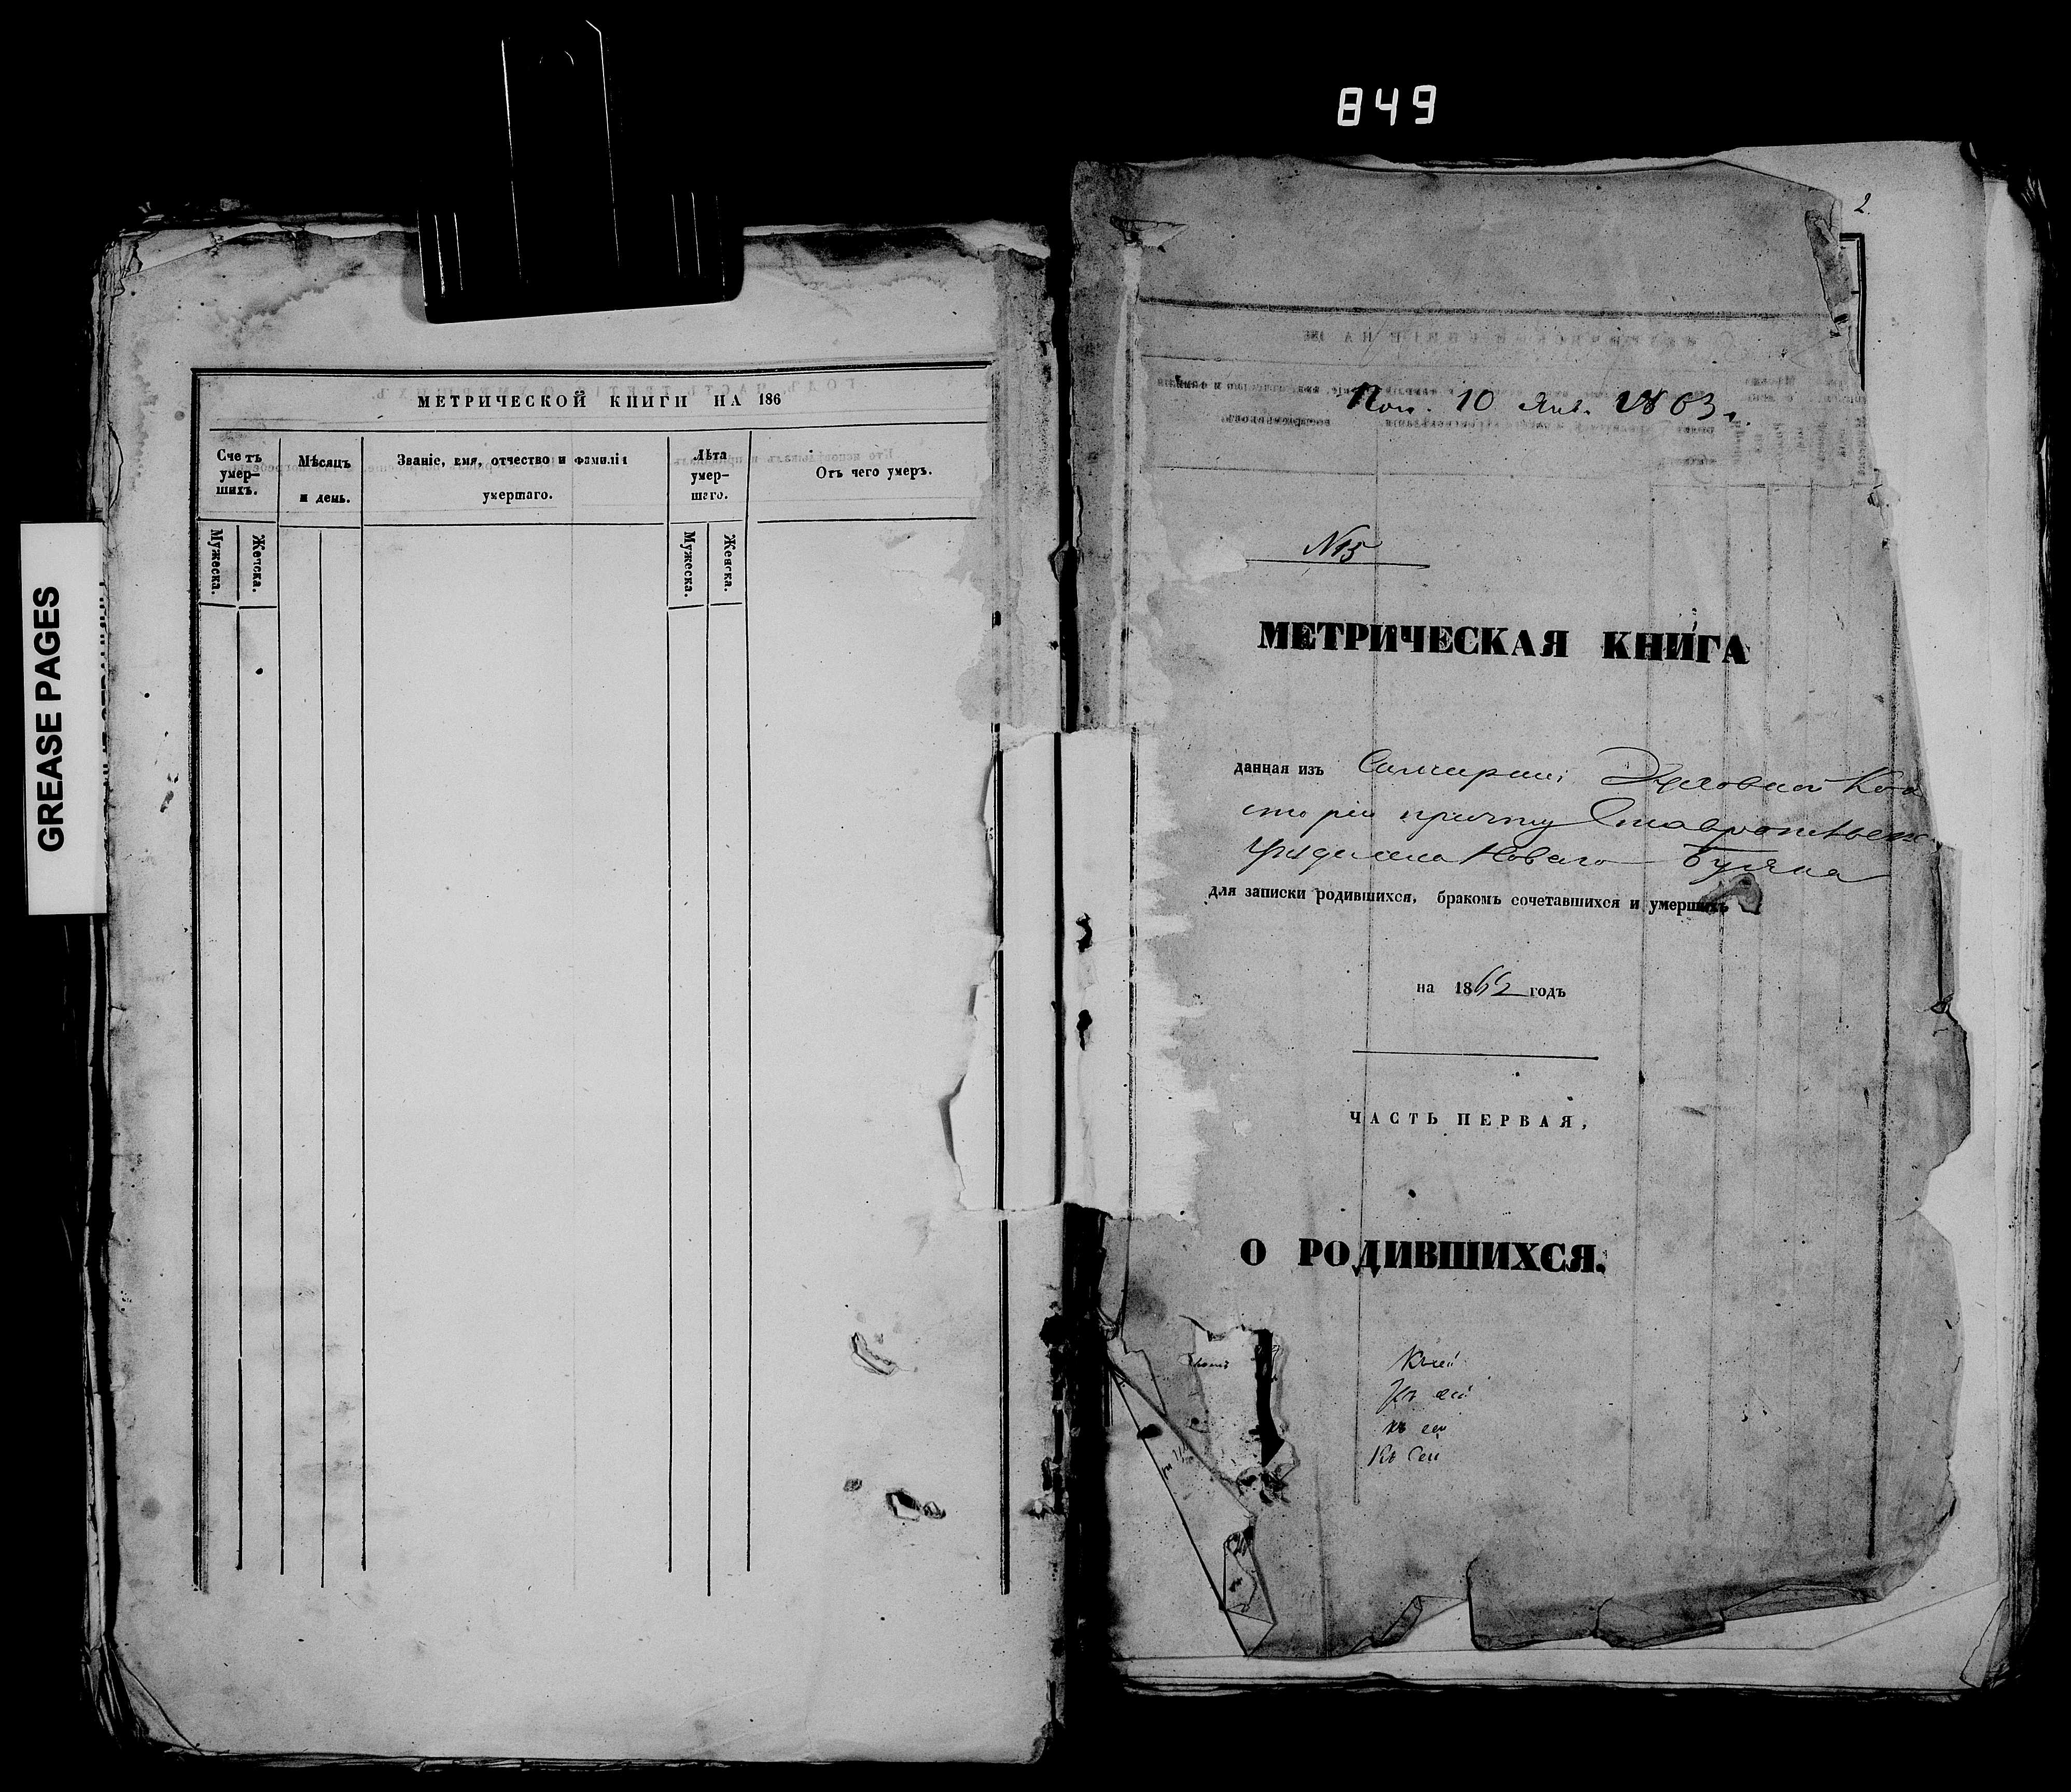 849
GREASE PAGES
МЕТРИЧЕСКОЙ КНИГИ НА 186
Счетъ умер-
шихъ.
Мѣсяцъ
и день.
Званіе, имя, отчество и фамилія
умершаго.
Лѣта
умер-
шаго.
Отъ чего умеръ.
Мужеска.
Женска.
Мужеска.
Женска.
2
Пол. 10 Янв. 1863 г.
N15
МЕТРИЧЕСКАЯ КНИГА
данная изъ Самарской Духовной Кон
сторіи причту Ставропольск
уѣзда села Новаго Буяна
для записки родившихся, бракомъ сочетавшихся и умершихъ
на 1862 годъ
ЧАСТЬ ПЕРВАЯ,
О РОДИВШИХСЯ.
Къ сей
Къ сей
къ сей
Къ Сей